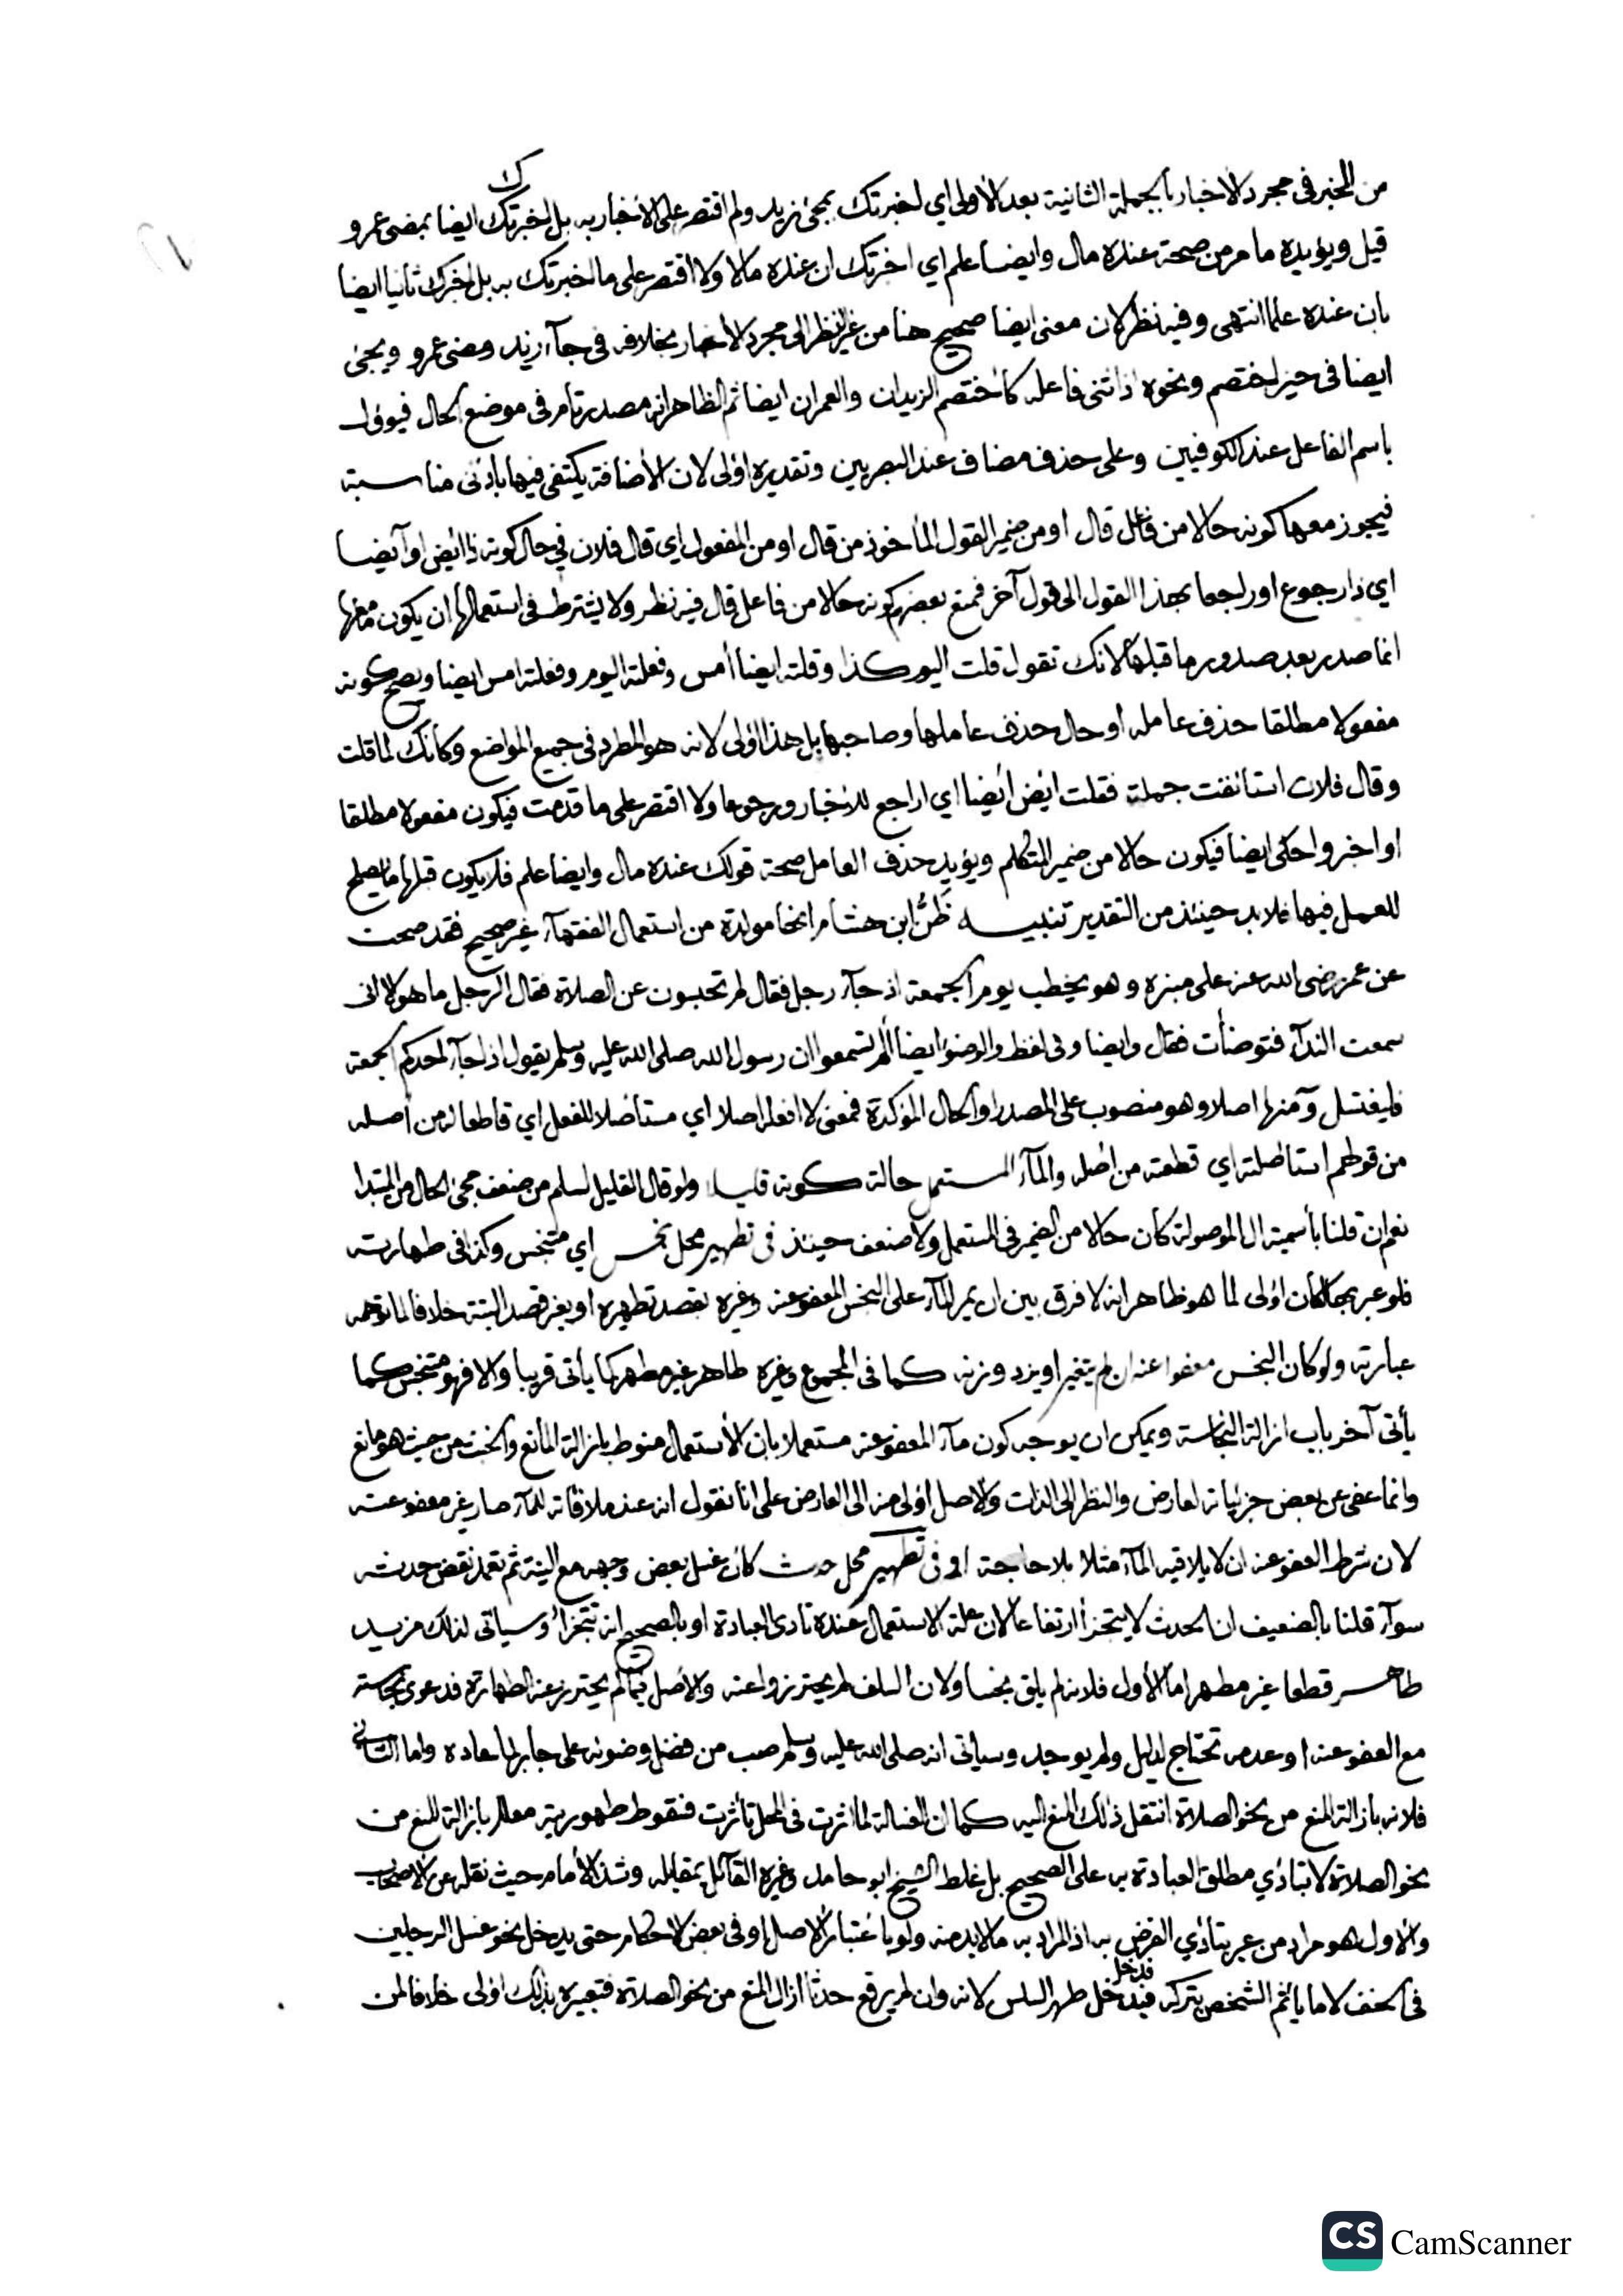 من الخبر في مجرد الاخبار بالجملة الثانية بعد الأولى اي اخبرتك بمجئ زيد ولم اقتصر على الأخبار به بل اخبرتك ايضا بمضى عمرو
قيل ويؤيده ما مر من صحة عنده مال وايضا علم اي اخبرتك ان عنده مالا ولا اقتصر على ما اخبرتك به بل اخبرك ثانيا ايضا
بان عنده علما انتهى وفيه نظر لان معنى ايضا صحيح هنا من غير نظر الى مجرد الأخبار بخلافه في جآء زيد ومضى عمرو ويجئ
ايضا في حيز اختصم ونحوه اذا ثنى فاعله كأختصم الزيدان والعمران ايضا ثم الظاهر انه مصدر تام في موضع الحال فيوؤل
باسم الفاعل عند الكوفيين وعلى حذف مضاف عند البصريين وتقديره اولى لان الأضافة يكتفى فيها بأدنى مناسبة
فيجوز معها كونه حالا من فاعل قال او من ضمير القول المأخوذ من قال او من المفعول اي قال فلان في حال كونه ذا ايض او آيضا
اي ذا رجوع او راجعا بهذا القول الى قول آخر فمنع بعضهم كونه حالا من فاعل قال فيه نظر ولا يشترط في استعمالها ان يكون معها
انما صدر بعد صدور ما قبلها لانك تقول قلت اليوم كذا وقلته ايضا أمس وفعلته اليوم وفعلته امس ايضا ويصح كونه
مفعولا مطلقا حذف عامله او حال حذف عاملها وصاحبها بل هذا اولى لانه هو المطرد في جميع المواضع وكأنك لما قلت
وقال فلان استأنفت جملة فقلت ايض ايضا اي اراجع للاخبار رجوعا ولا اقتصر على ما قدمت فيكون مفعولا مطلقا
او اخبر واحكى ايضا فيكون حالا من ضمير المتكلم ويؤيد حذف العامل صحة قولك عنده مال وايضا علم فلا يكون قبلها ما يصلح
للعمل فيها فلا بد حينئذ من التقدير تنبيه ظن ابن هشام انها مولدة من استعمال الفقهآء غير صحيح فقد صحت
عن عمر رضى الله عنه على منبره وهو يخطب يوم الجمعة اذ جآء رجل فقال لم تحبسون عن الصلاة فقال الرجل ما هو لا انى
سمعت الندآء فتوضأت فقال وايضا وفى لفظ والوضوء ايضا الم تسمعوا ان رسول الله صلى الله عليه وسلم يقول اذا جآء احدكم الجمعة
فليغتسل ومنها اصلا وهو منصوب على المصدر او الحال المؤكدة فمعنى لا افعله اصلا اي مستأصلا للفعل اي قاطعا له من أصله
من قولهم استأصلته اي قطعته من اصله والمآء المستعمل حالة كونه قليلا ولو قال القليل لسلم من ضعف مجئ الحال من المبتدا
نعم ان قلنا بأسمية ال الموصولة كان حالا من الضمير في المستعمل ولا ضعف حينئذ في تطهير محل نجس اي متنجس وكذا في طهارته
فلو عبر بها كان اولى لما هو ظاهر انه لا فرق بين ان يمر المآء على النجس المعفو عنه وغيره بقصد تطهيره او بغير قصد البتة خلافا لما توهمه
عبارته ولو كان النجس معفوا عنه ان لم يتغير او يزد وزنه كما في المجموع وغيره طاهر غير مطهر كما يأتى قريبا والا فهو متنجس كما
يأتى آخر باب ازالة النجاسة ويمكن ان يوجه كون مآء المعفو عنه مستعملا بان الأستعمال منوط بازالة المانع والخبث من حيث هو مانع
وانما عفى عن بعض جزئياته لعارض والنظر الى الذات والاصل اولى منه الى العارض على انا نقول انه عند ملاقاته للمآء صار غير معفو عنه
لان شرط العفو عنه ان لا يلاقيه المآء مثلا بلا حاجة او في تطهير محل حدث كان غسل بعض وجهه مع النية ثم تعمد نقض حدثه
سوآء قلنا بالضعيف ان الحدث لا يتجزأ ارتفاعا لان علة الاستعمال عنده تادى العبادة او بالصحيح انه يتجزأ وسيأتى لذلك مزيد
طاهر قطعا غير مطهر اما الأول فلانه لم يلق نجسا ولان السلف لم يحترزوا عنه والأصل فيما لم يحترز عنه الطهارة فدعوى نجاسته
مع العفو عنه او عدمه تحتاج لدليل ولم يوجد وسيأتى انه صلى الله عليه وسلم صب من فضل وضوئه على جابر لما عاده واما الثاني
فلانه بازالة المنع من نحو الصلاة انتقل ذلك المنع اليه كما ان الغسالة لما اثرت في المحل تأثرت فسقوط طهوريته معلل بازالة المنع من
نحو الصلاة لا بتأدي مطلق العبادة به على الصحيح بل غلط الشيخ ابو حامد وغيره القآئل بمقابله وشذ الأمام حيث نقله عن الاصحاب
والأول هو مراد من عبر بتأدي الفرض به اذ المراد به ما لا بد منه ولو بأعتبار الاصل او في بعض الاحكام حتى يدخل نحو غسل الرجلين
في الخف لا ما يأثم الشخص بتركه فيدخل طهر السلس لانه وان لم يرفع حدثا ازال المنع من نحو الصلاة فتعبيره بذلك اولى خلافا لمن
CS CamScanner